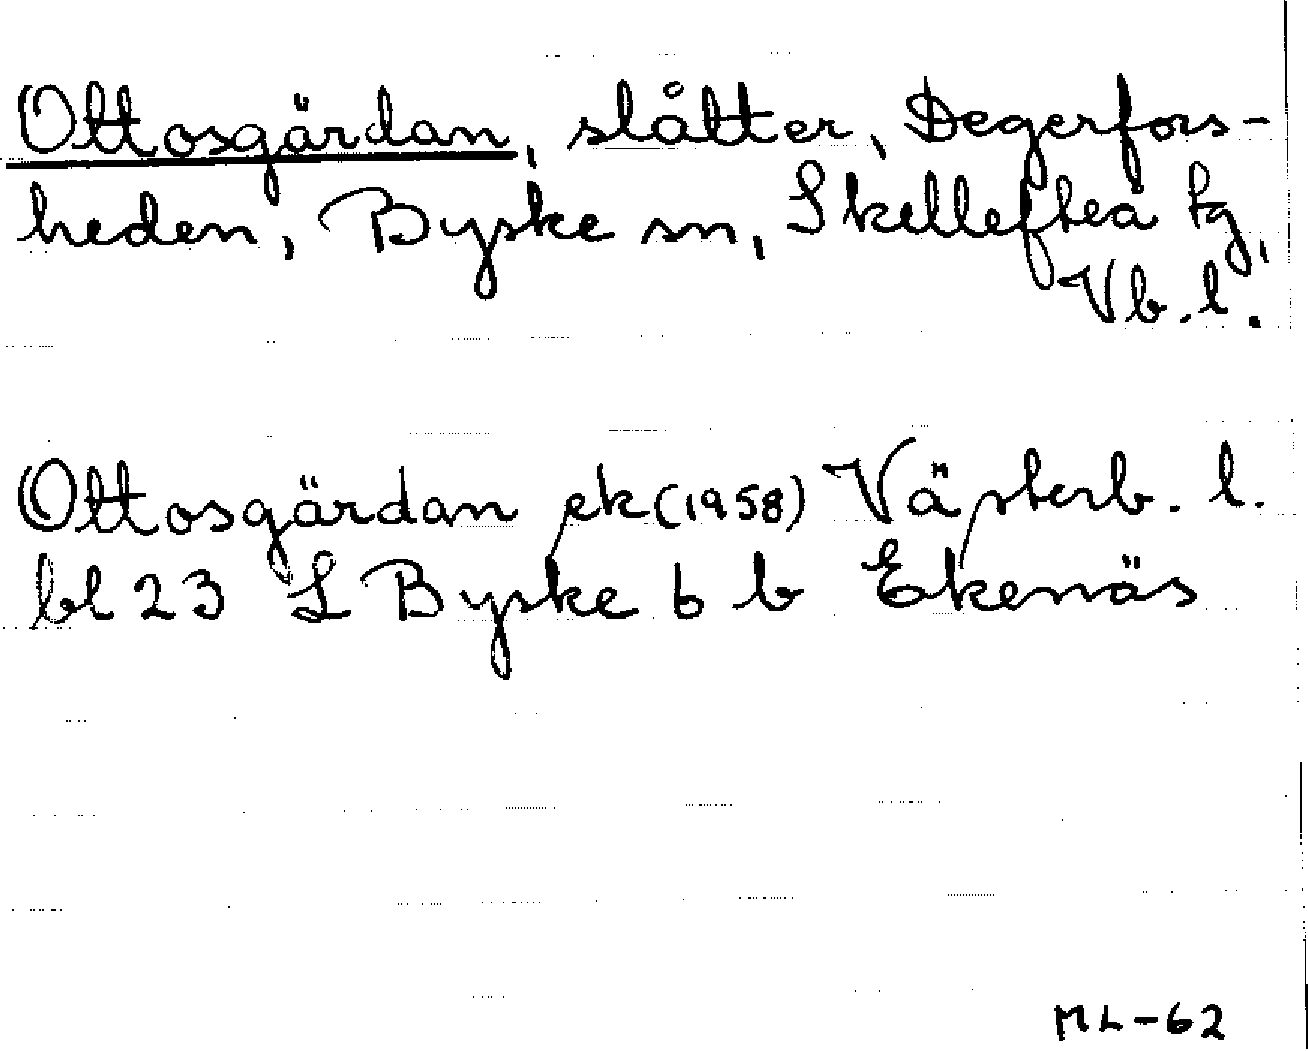 Ottosgärdan, slåtter, Degerfors-
heden, Byske sn, Skellefteå tg,
Vb. l.
Ottosgärdan ek (1958) Västerb. l.
bl 23 S Byske b b Ekenäs
ML-62